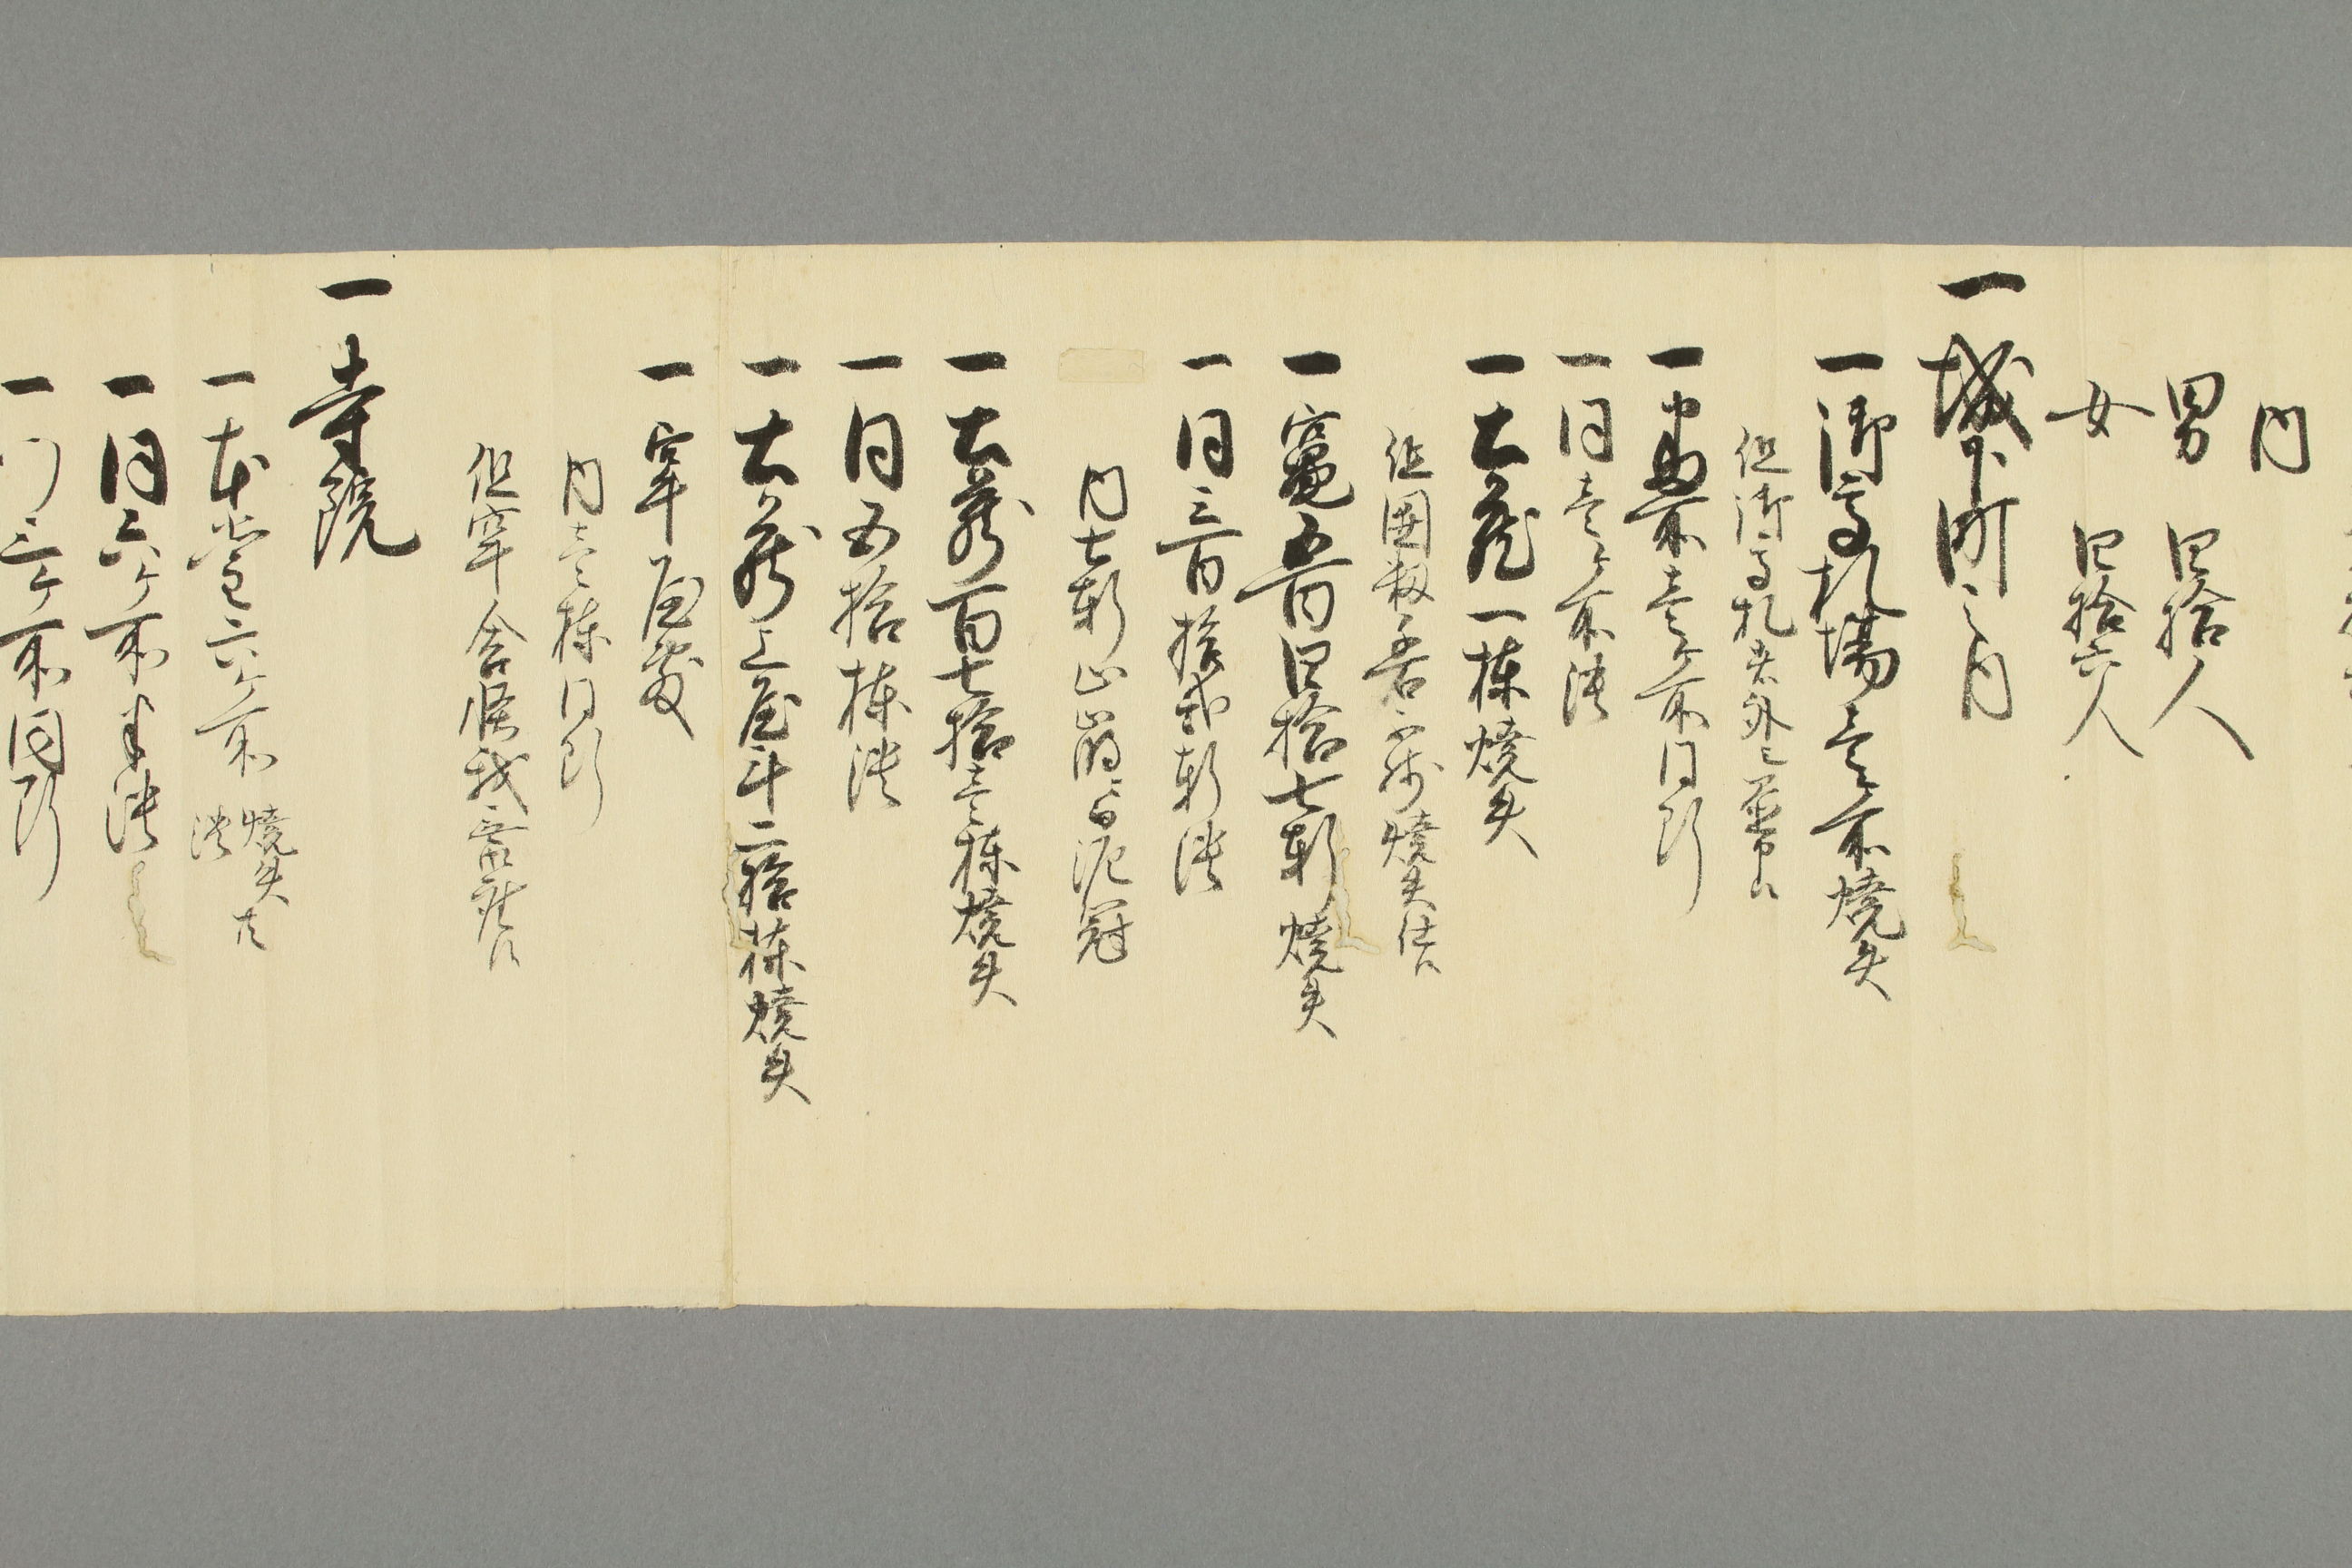 内
男 四拾人
女 四拾六人
一城下町之内
一御高札場壱ヶ所焼失
但御高札者外シ置申候
一番所壱ヶ所同断
一同壱ヶ所潰
一土蔵一棟焼失
但囲籾不残焼失仕候
一竈五百四拾七軒焼失
一同三百拾弐軒潰
内七軒山崩ニ而泥冠
一土蔵百七拾壱棟焼失
一同五拾棟潰
一土蔵上屋斗二拾棟焼失
一牢屋敷
内壱棟同断
但牢舎怪我無御座候
一寺院
一本堂六ヶ所 焼失

一同六ヶ所半潰
一門三ヶ所同断